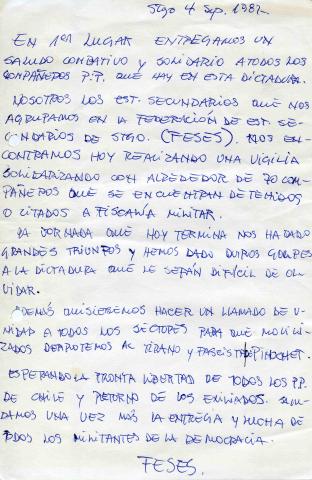 Stgo 4 Sep. 1987
EN 1er LUGAR ENTREGAMOS UN
SALUDO COMBATIVO Y SOLIDARIO A TODOS LOS
COMPAÑEROS P.P. QUE HAY EN ESTA DICTADURA.
NOSOTROS LOS EST. SECUNDARIOS QUE NOS
AGRUPAMOS EN LA FEDERACION DE EST. SE-
CUNDARIOS DE STGO. (FESES). NOS EN-
CONTRAMOS HOY REALIZANDO UNA VIGILIA
SOLIDARIZANDO CON ALREDEDOR DE 70 COM-
PAÑEROS QUE SE ENCUENTRAN DETENIDOS
O CITADOS A FISCALÍA MILITAR.
LA JORNADA QUE HOY TERMINA NOS HA DADO
GRANDES TRIUNFOS Y HEMOS DADO DUROS GOLPES
A LA DICTADURA QUE LE SERÁN DIFÍCIL DE OL-
VIDAR.
ADEMÁS QUISIEREMOS HACER UN LLAMADO DE U-
NIDAD A TODOS LOS SECTORES PARA QUE MOVILI-
ZADOS DERROTEMOS AL TIRANO Y FASCISTA PINOCHET.
ESPERANDO LA PRONTA LIBERTAD DE TODOS LOS P.P.
DE CHILE Y RETORNO DE LOS EXILIADOS. SALU-
DAMOS UNA VEZ MÁS LA ENTREGA Y LUCHA DE
TODOS LOS MILITANTES DE LA DEMOCRACIA.
FESES.